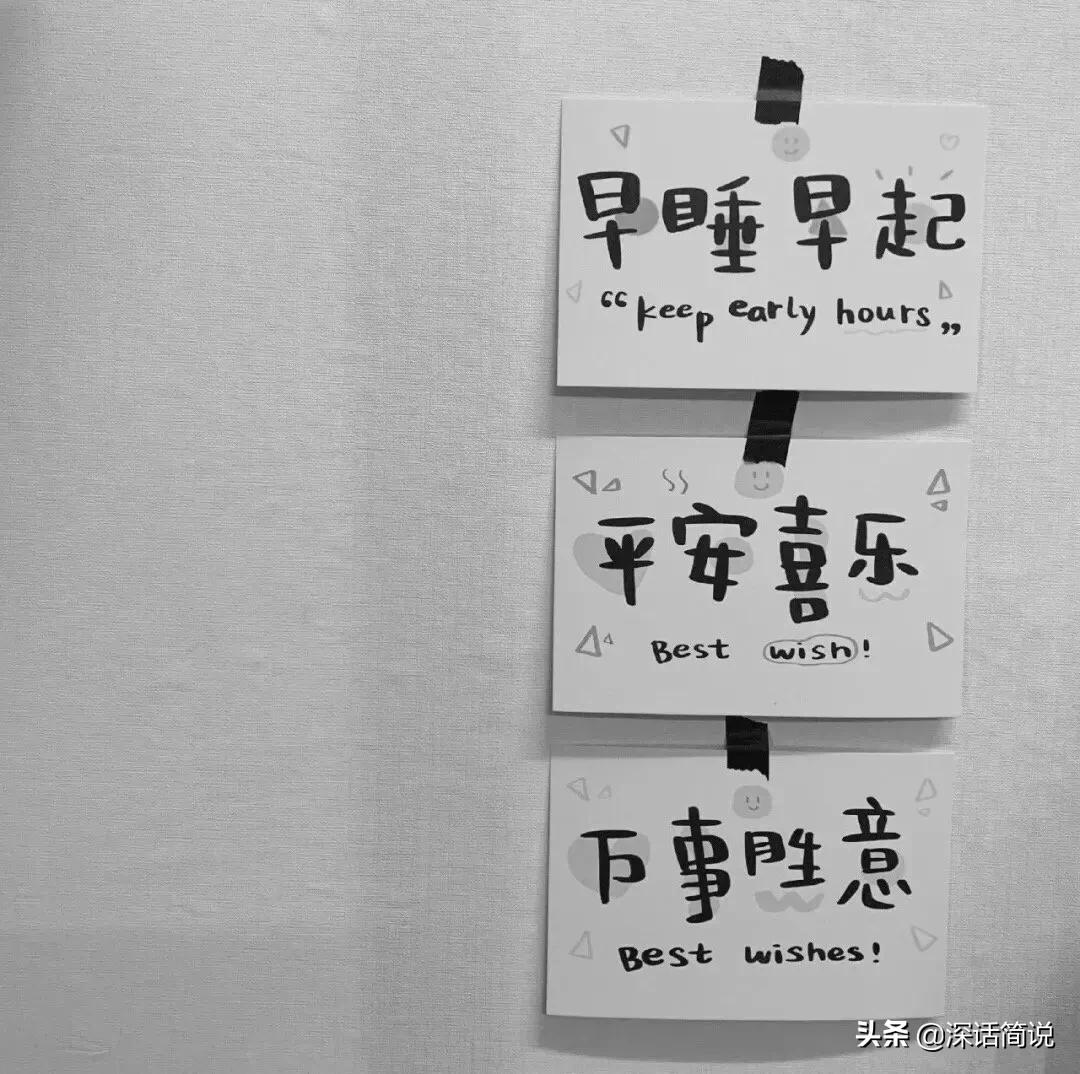 早睡早起
“keep early hours„
平安喜乐
Best wish!
万事胜意
Best wishes!
头条 @深话简说